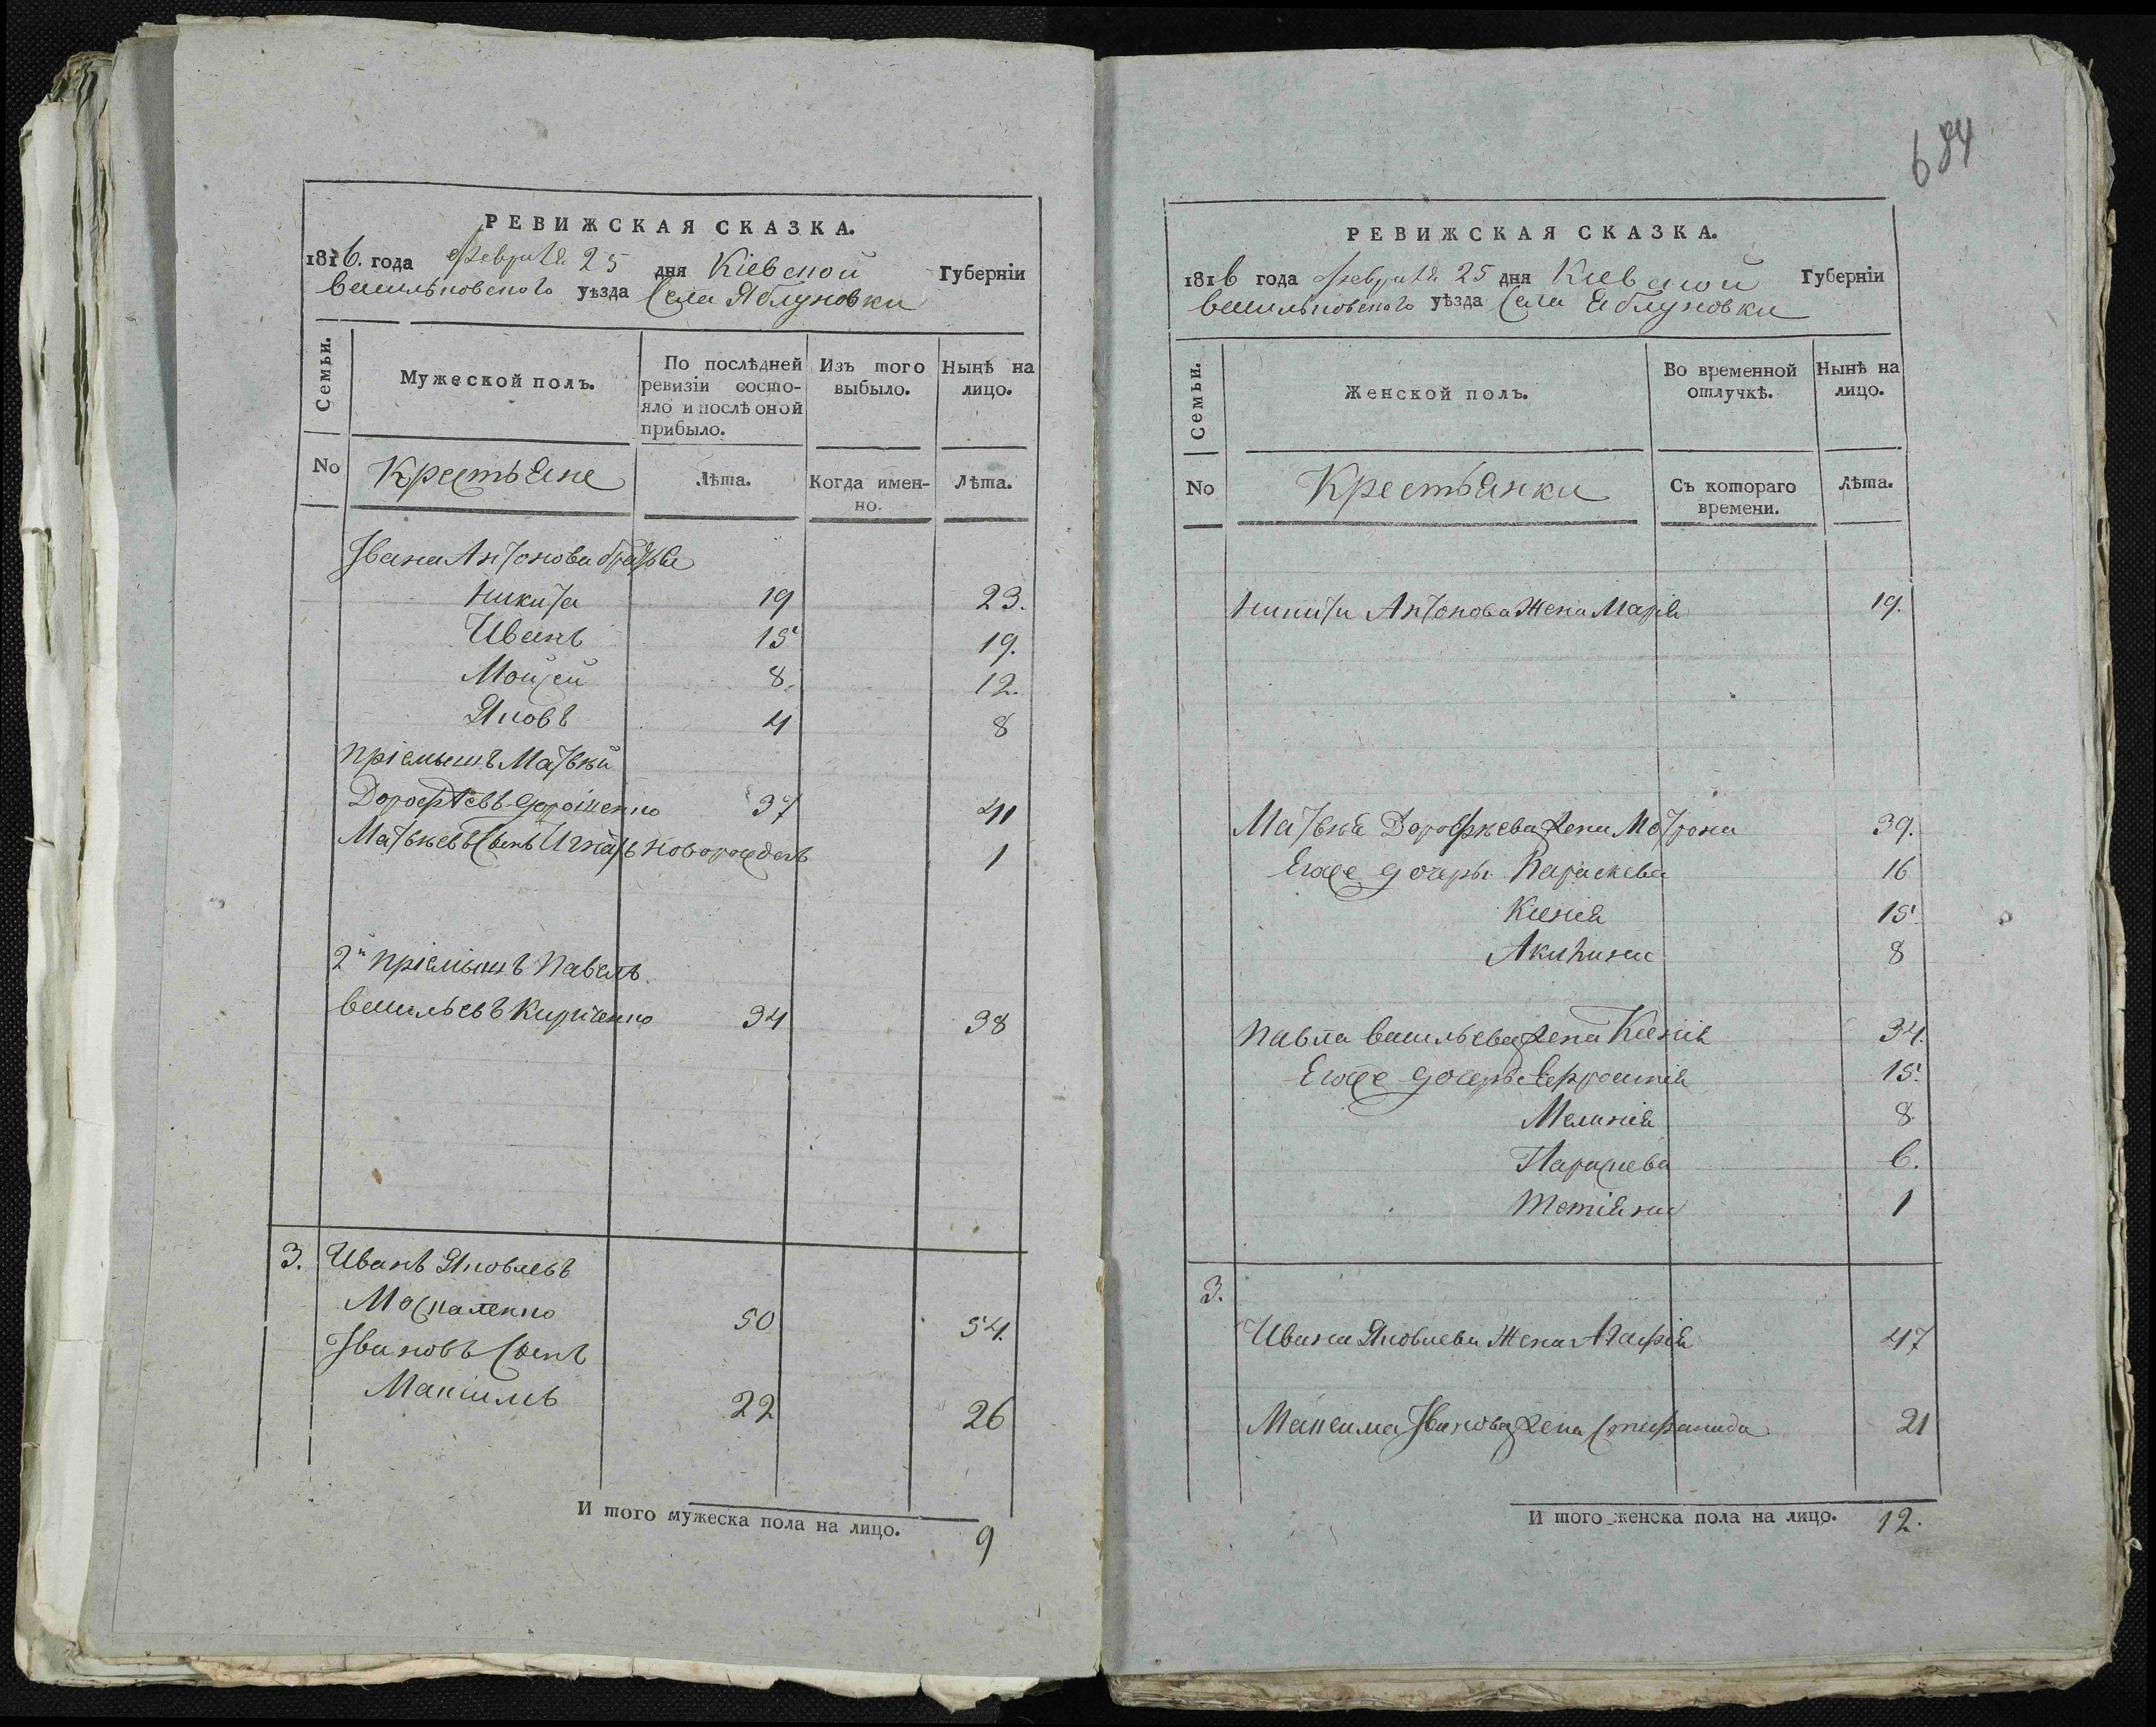 РЕВИЖСКАЯ СКАЗКА.
1816. года февраля 25 дня Кіевской Губерніи
васильковского уѣзда Села Яблуновки
Семьи.
Мужеской полъ.
По послѣдней ревизіи состо-
яло и послѣ оной
прибыло.
Изъ того
выбыло.
Нынѣ на
лицо.
No
Крестьяне
Лѣта.
Когда имен-
но.
Лѣта.
Івана Антонова братья
Никита 19 23.
Иванъ 15 19.
Мойсей 8. 12.
Яковъ 4 8
пріемышъ Матвѣй
Дорофѣевъ Дорошенко 37 41
Матвѣевъ Сынъ Игнатъ новорожденъ 1
2й пріемышъ Павелъ
васильевъ Кириченко 34 38
3. Иванъ Яковлевъ
Москаленко 50 54.
Івановъ Сынъ
Максимъ 22 26
И того мужеска пола на лицо. 9
684
РЕВИЖСКАЯ СКАЗКА.
1816 года февраля 25 дня Кіевской Губерніи
васильковского уѣзда Села Яблуновки
Семьи.
Женской полъ.
Во временной
отлучкѣ.
Нынѣ на
лицо.
No
Крестьянки
Съ котораго
времени.
Лѣта.
Никиты Антонова Жена Марія 19.
Матвѣя Дорофѣева жена Мотрона 39.
Егоже дочеры Параскева 16
Ксенія 15.
Акилина 8
Павла васильева жена Ксенія 34.
Егоже дочеры Евфросинія 15.
Меланія 8
Параскева 6.
Тетіяна 1
3.
Ивана Яковлева Жена Агафія 47
Максима Іванова жена Стефанида 21
И того женска пола на лицо. 12.